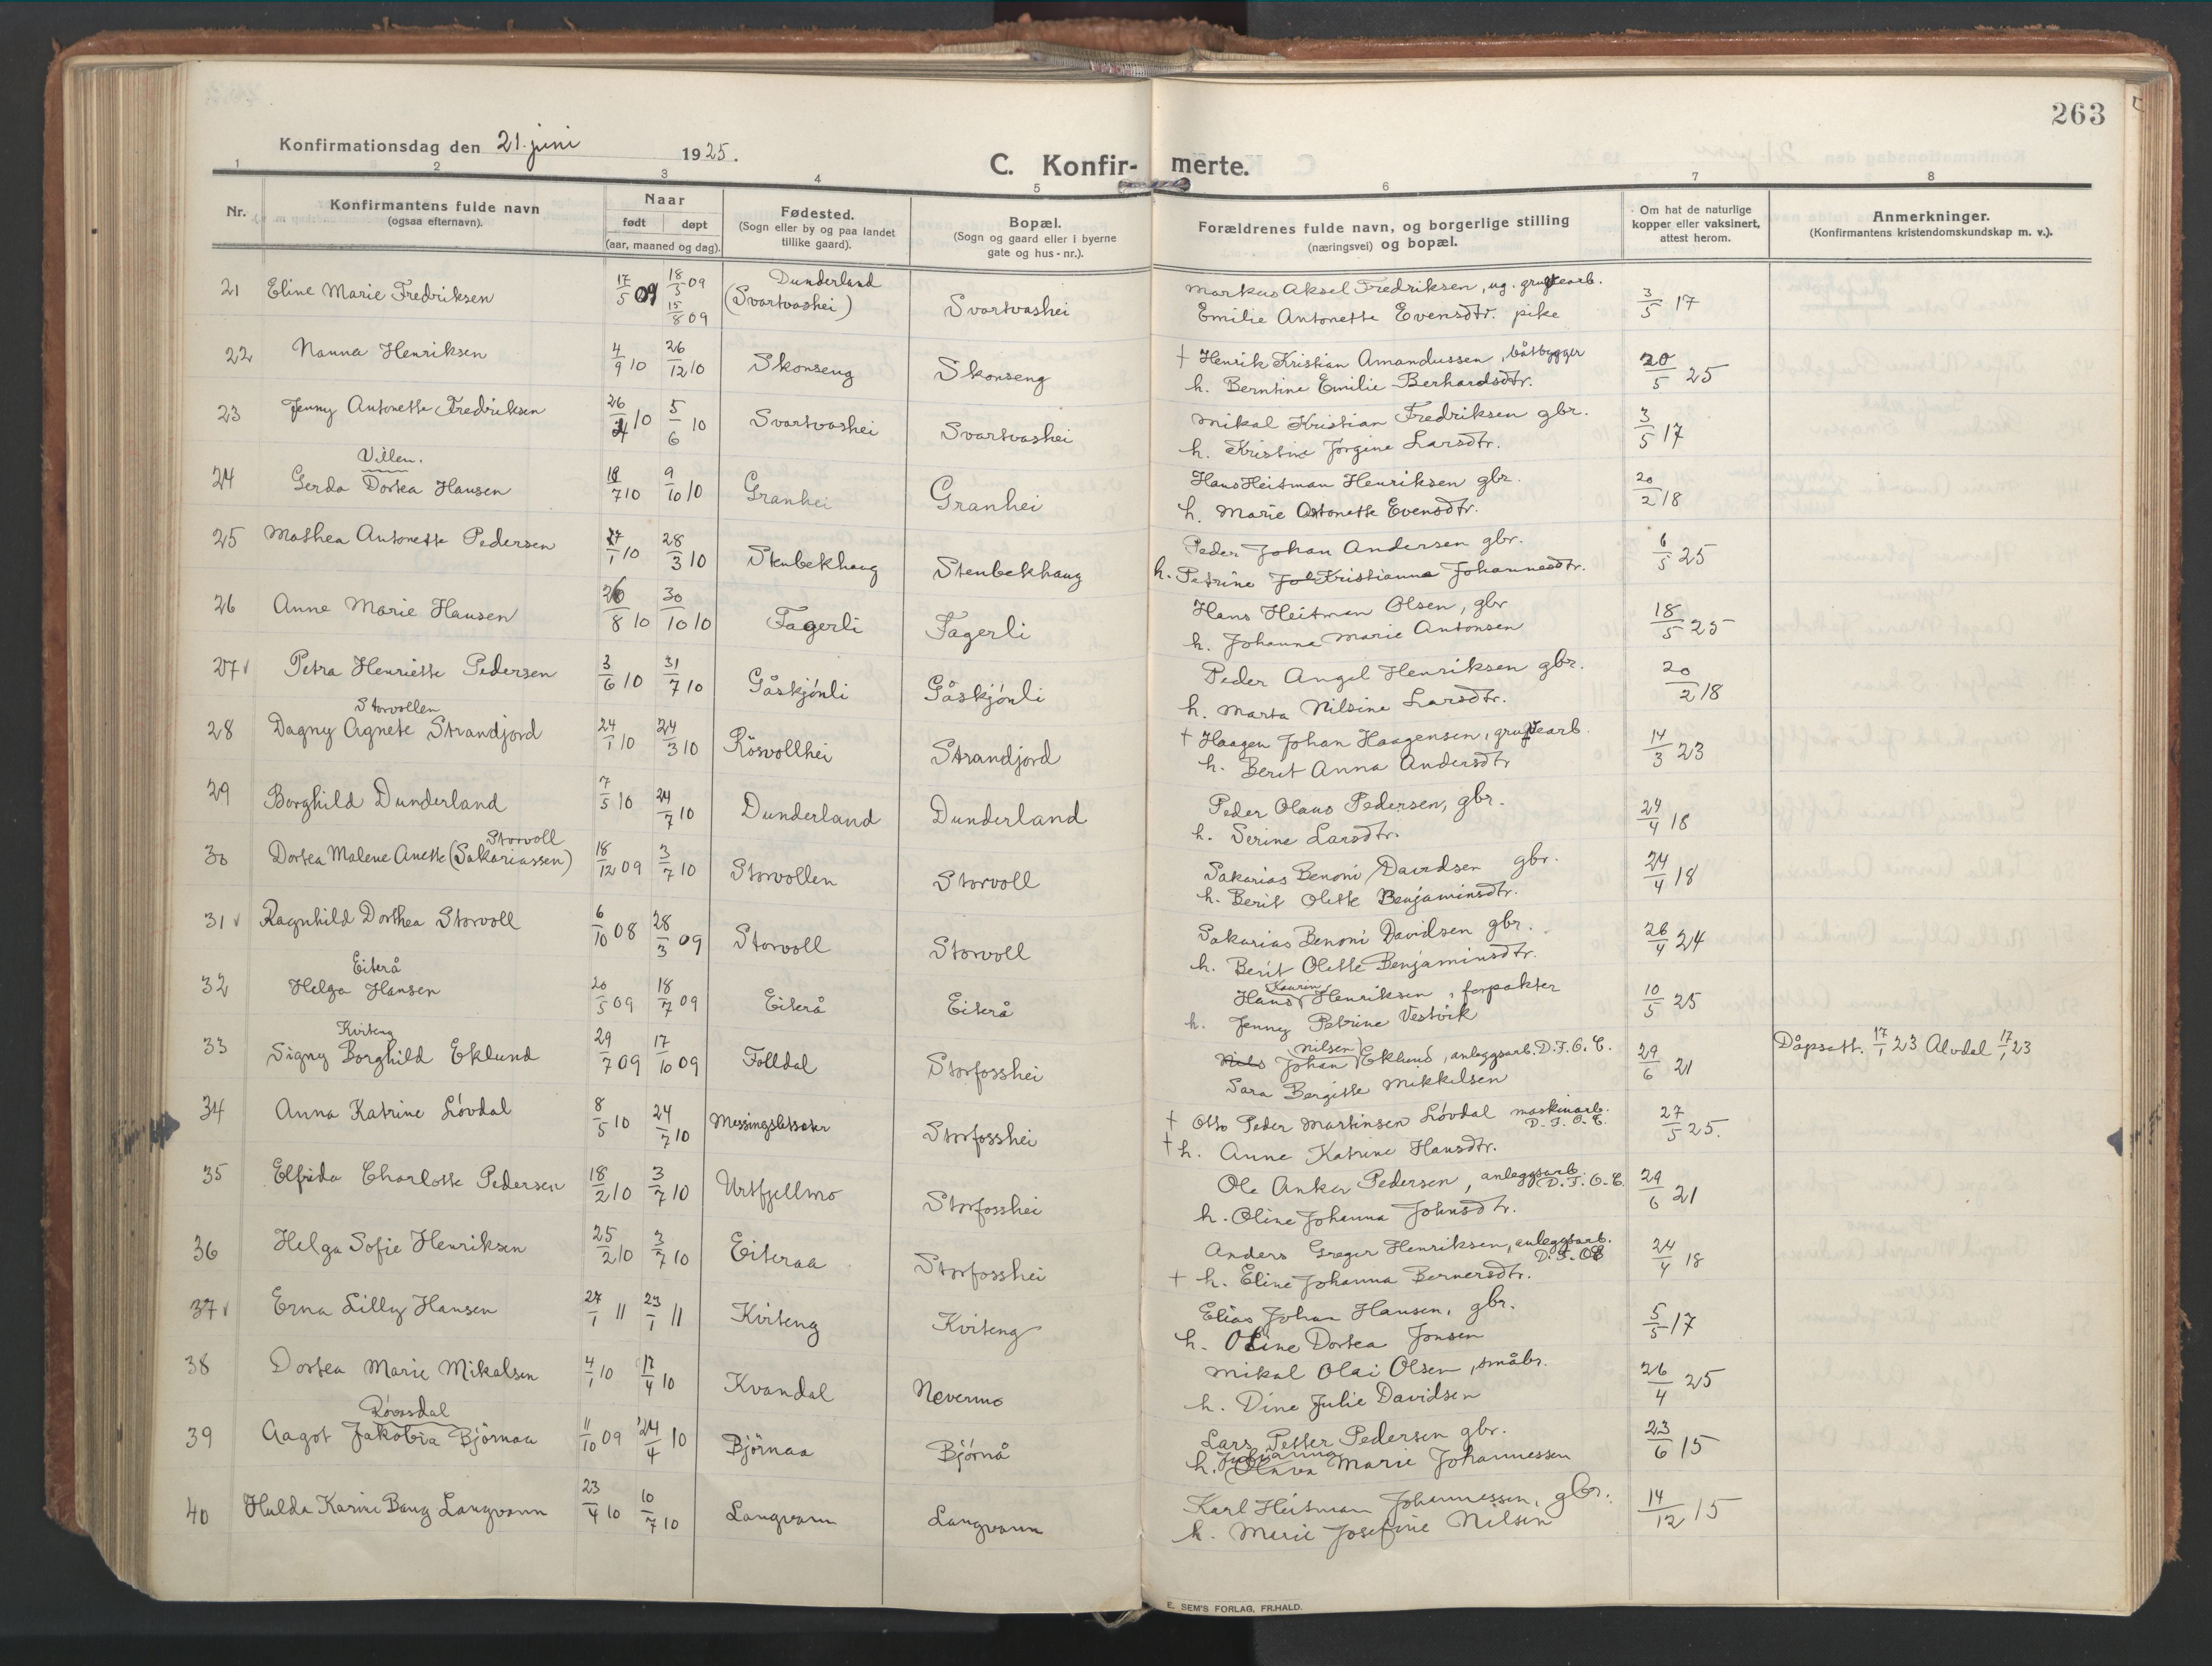 263
Konfirmationsdag den 21. juni 1925.
C. Konfir- merte.
1 2 3 4 5 6 7 8
Nr. Konfirmantens fulde navn (ogsaa efternavn). Naar født døpt (aar, maaned og dag). Fødested. (Sogn eller by og paa landet tillike gaard). Bopæl. (Sogn og gaard eller i byerne gate og hus-nr.). Forældrenes fulde navn, og borgerlige stilling (næringsvei) og bopæl. Om hat de naturlige kopper eller vaksinert, attest herom. Anmerkninger. (Konfirmantens kristendomskundskap m. v.).
21 Eline Marie Fredriksen 17/5 09 18/5 09 15/8 09 Dunderland (Svartvashei) Svartvashei Markus Aksel Fredriksen, ug. grubearb. 3/5 17
Emilie Antonette Evensdtr. pike
22 Nanna Henriksen 4/9 10 26/12 10 Skonseng Skonseng † Henrik Kristian Amandussen, båtbygger 20/5 25
h. Berntine Emilie Berhardsdtr.
23 Jenny Antonette Fredriksen 26/4 10 5/6 10 Svartvashei Svartvashei Mikal Kristian Fredriksen gbr. 3/5 17
h. Kristine Jørgine Larsdtr.
Villen.
24 Gerda Dortea Hansen 18/7 10 9/10 10 Granhei Granhei Hans Heitman Henriksen gbr. 20/2 18
h. Marie Antonette Evensdtr.
25 Mathea Antonette Pedersen 27/1 10 28/3 10 Stenbekhaug Stenbekhaug Peder Johan Andersen gbr. 6/5 25
h. Petrine Joh Kristianna Johannesdtr.
26 Anne Marie Hansen 26/8 10 30/10 10 Fagerli Fagerli Hans Heitman Olsen, gbr 18/5 25
h. Johanna Marie Antonsen
27 v Petra Henriette Pedersen 3/6 10 31/7 10 Gåskjønli Gåskjønli Peder Angel Henriksen gbr. 20/2 18
h. Marta Nilsine Larsdtr.
Storvollen
28 Dagny Agnete Strandjord 24/1 10 24/3 10 Rösvollhei Strandjord † Haagen Johan Haagensen, grubearb. 14/3 23
h. Berit Anna Andersdtr
29 Borghild Dunderland 7/5 10 24/7 10 Dunderland Dunderland Peder Olaus Pedersen, gbr. 24/4 18
h. Serine Larsdtr.
Storvoll
30 Dortea Malene Anette (Sakariassen) 18/12 09 3/7 10 Storvollen Storvoll Sakarias Benoni Davidsen gbr. 24/4 18
h. Berit Olette Benjaminsdtr.
31 v Ragnhild Dorthea Storvoll 6/10 08 28/3 09 Storvoll Storvoll Sakarias Benoni Davidsen gbr. 26/4 24
h. Berit Olette Benjaminsdtr.
Eiterå
32 Helga Hansen 20/5 09 18/7 09 Eiterå Eiterå Hans Kaurin Henriksen, forpakter 10/5 25
h. Jenny Petrine Vestvik
Kviteng
33 Signy Borghild Eklund 29/7 09 17/10 09 Folldal Storfosshei Nils Johan Nilsen Eklund, anleggsarb. D.F.O.C. 29/6 21 Dåpsatt. 17/1 23 Alvdal 17/1 23
Sara Bergitte Mikkelsen
34 Anna Katrine Løvdal 8/5 10 24/7 10 Messingsletsæter Storfosshei † Otto Peder Martinsen Løvdal maskinarb. D.F.O.C. 27/5 25.
† h. Anne Katrine Hansdtr.
35 Elfrida Charlotte Pedersen 18/2 10 3/7 10 Urtfjellmo Storfosshei Ole Anker Pedersen, anleggsarb. D.F.O.C. 29/6 21
h. Oline Johanna Johnsdtr.
36 Helga Sofie Henriksen 25/2 10 3/7 10 Eiteraa Storfosshei Anders Greger Henriksen, anleggsarb. D.F.OC 24/4 18
† h. Eline Johanna Bernersdtr.
37 v Erna Lilly Hansen 27/1 11 23/1 11 Kviteng Kviteng Elias Johan Hansen, gbr. 5/5 17
h. Oline Dortea Jonsen
38 Dortea Marie Mikalsen 4/1 10 17/4 10 Kvandal Nevermo Mikal Olai Olsen, småbr. 26/4 25
h. Dine Julie Davidsen
Røvasdal
39 Aagot Jakobia Björnaa 11/10 09 24/4 10 Björnaa Bjørnå Lars Petter Pedersen gbr. 23/6 15
h. Julianna Marie Johannessen
40 Hulda Karine Baug Langvann 23/4 10 10/7 10 Langvann Langvann Karl Heitman Johannessen, gbr. 14/12 15
h. Marie Josefine Nilsen
E. SEM'S FORLAG, FR.HALD.